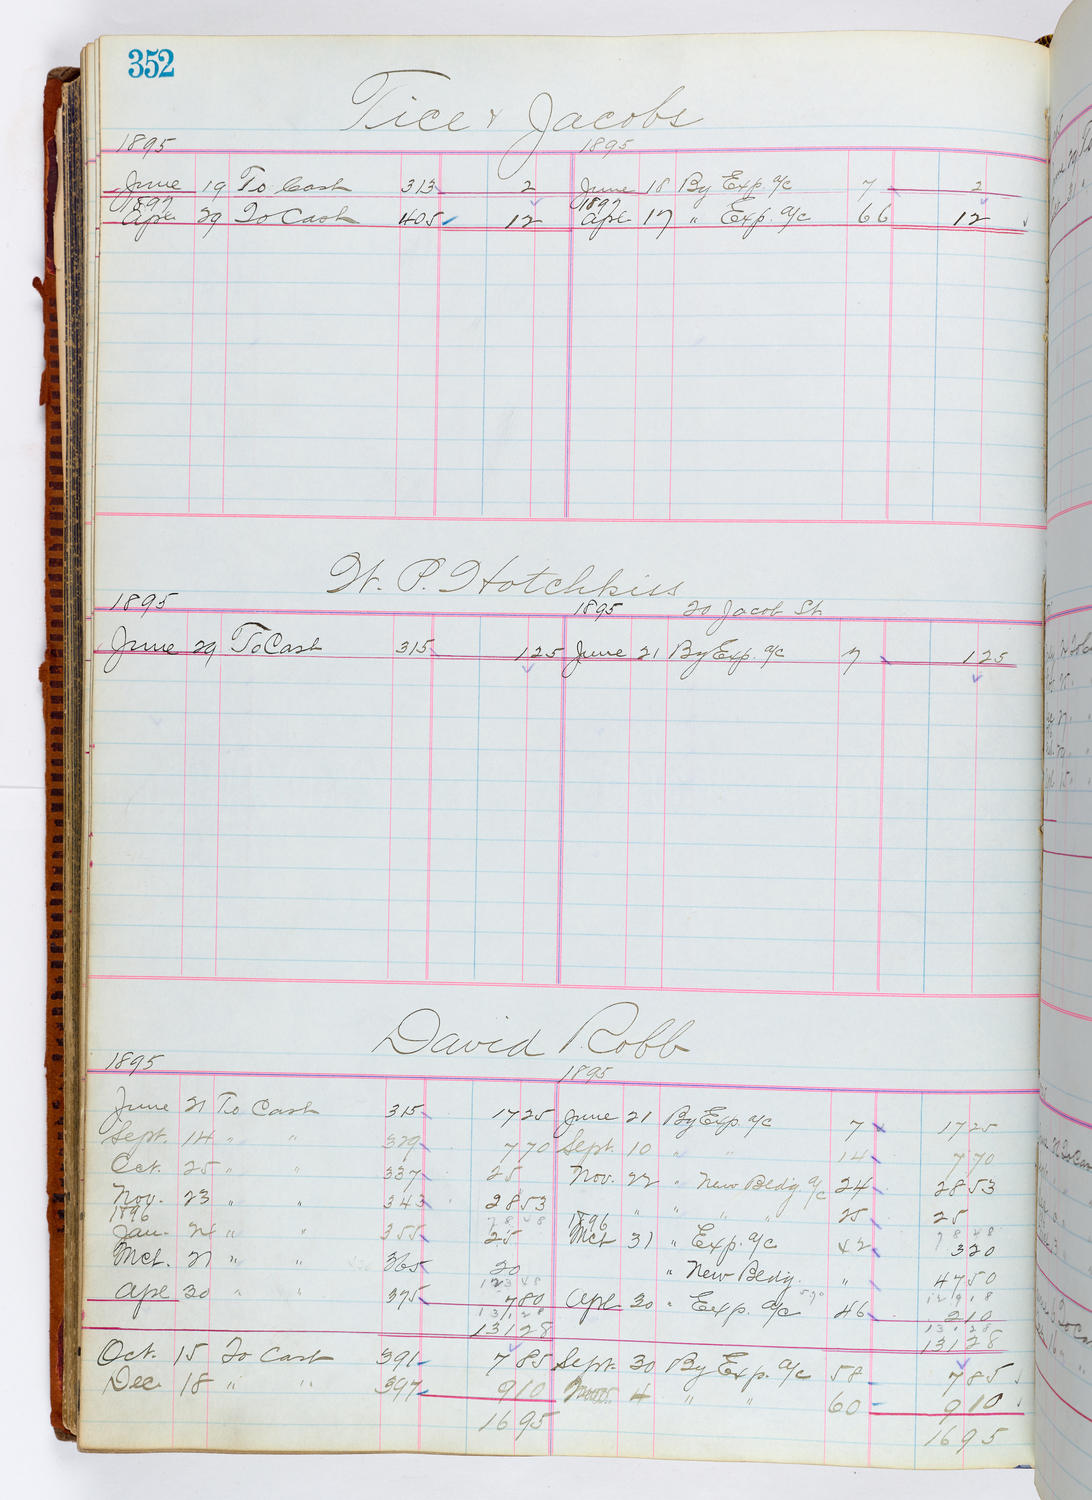 352
Tice & Jacobs
1895 1895
June 19 To Cash 313 2 June 18 By Exp. a/c 7 2
1897 1897
Apr 29 To Cash 405 12 Apr 17 " Exp. a/c 66 12
W. P. Hotchkiss
1895 1895 20 Jacob St.
June 29 To Cash 315 125 June 21 By Exp. a/c 7 125
David Robb
1895 1895
June 21 To Cash 315 1725 June 21 By Exp a/c 7 1725
Sept. 14 " " 329 770 Sept. 10 " " 14 770
Oct. 25 " " 337 25 Nov. 22 " New Bldg a/c 24 2853
Nov. 23 " " 343 2853 " " " " 25 25
1896 7848 1896 7848
Jan. 24 " " 355 25 Mch 31 " Exp. a/c 42 320
Mch. 21 " " 365 20 " New Bldg. " 4750
12348 12918
Apl 30 " " 375 780 Apl 30 " Exp. a/c 46 210
13128 13128
13128 13128
Oct. 15 To Cash 391 785 Sept. 30 By Exp. a/c 58 785
Dec. 18 " " 397 910 4 " " 60 910
1695 1695